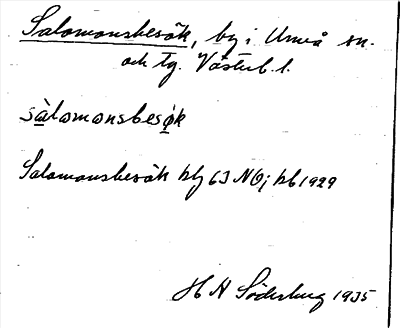 Salomonsbesök, by i Umeå sn.
och tg. Västerb. l.
sàlomonsbesǿk
Salomonsbesök kbg 63 NO; kb 1929
H A Söderberg 1935